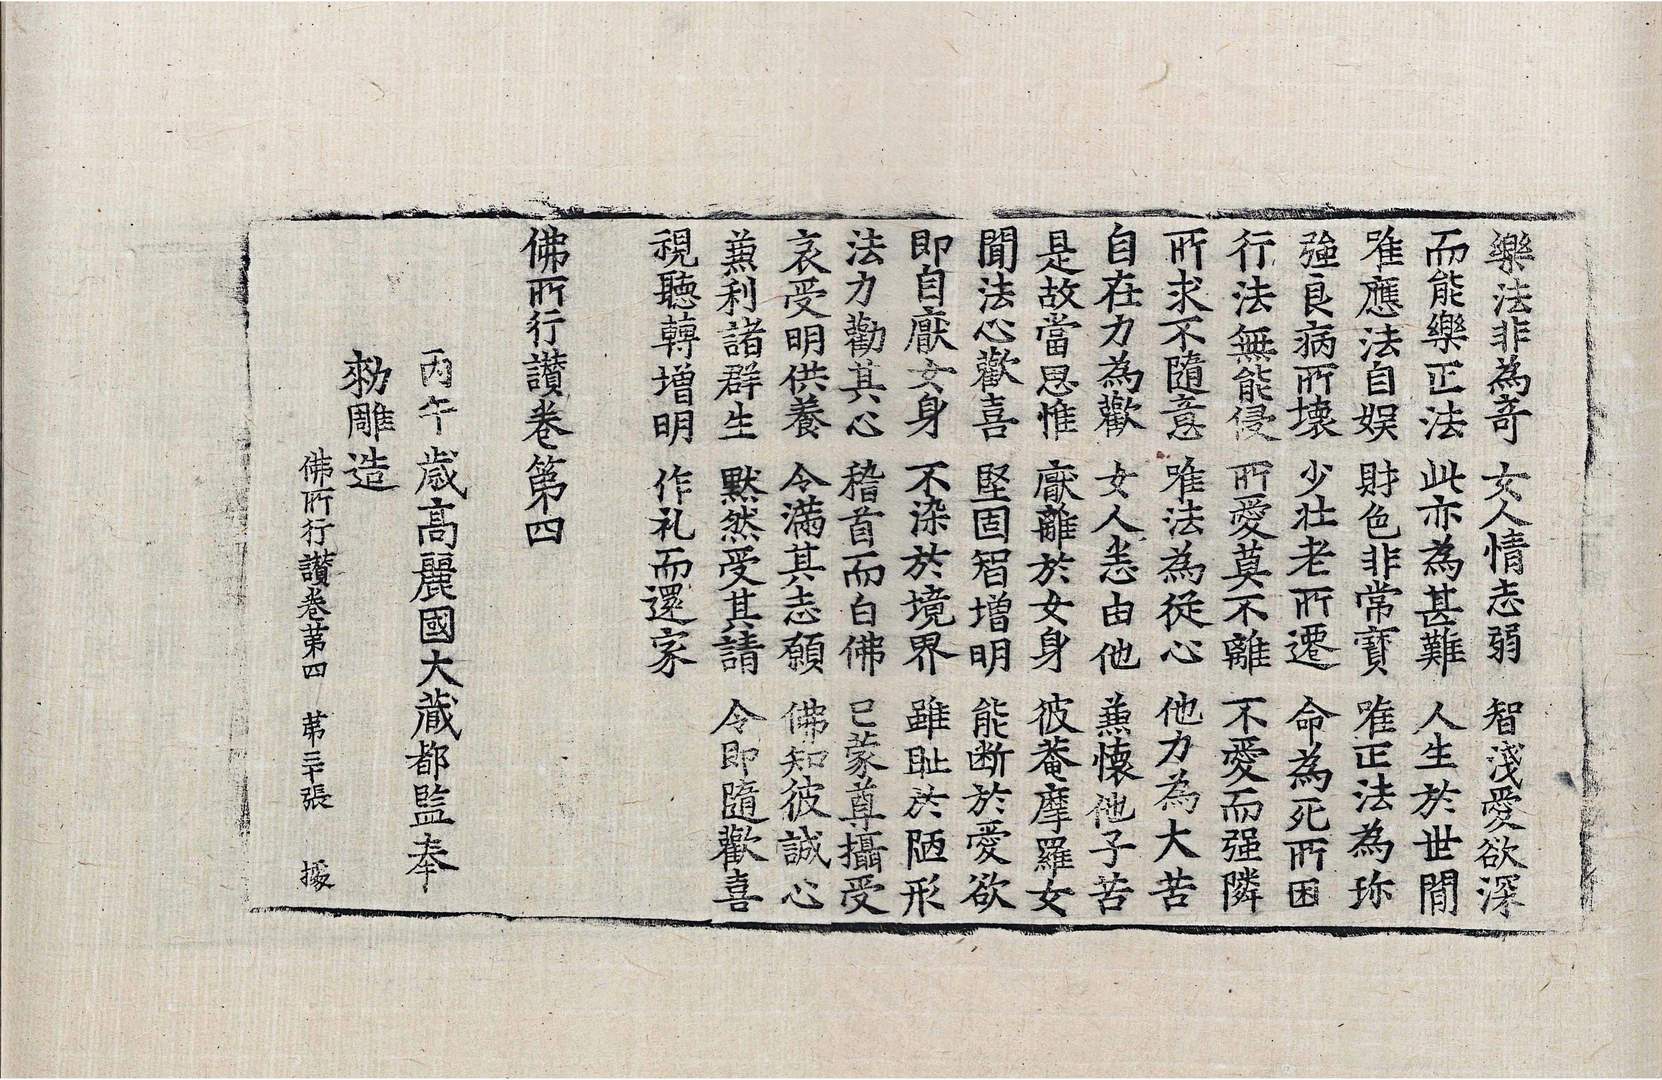 樂法非為奇 女人情志弱 智淺愛欲深
而能樂正法 此亦為甚難 人生於世間
唯應法自娛 財色非常寶 唯正法為珎
強良病所壞 少壯老所遷 命為死所困
行法無能侵 所愛莫不離 不愛而强隣
所求不隨意 唯法為從心 他力為大苦
自在力為歡 女人悉由他 兼懷他子苦
是故當思惟 厭離於女身 彼菴摩羅女
聞法心歡喜 堅固智增明 能断於愛欲
即自厭女身 不染於境界 雖耻於陋形
法力勸其心 稽首而白佛 已蒙尊攝受
哀受明供養 令滿其志願 佛知彼誠心
兼利諸群生 黙然受其請 令即隨歡喜
視聽轉增明 作礼而還家
佛所行讚卷第四
丙午歲高麗國大藏都監奉
勑雕造
佛所行讚卷第四 第三十張